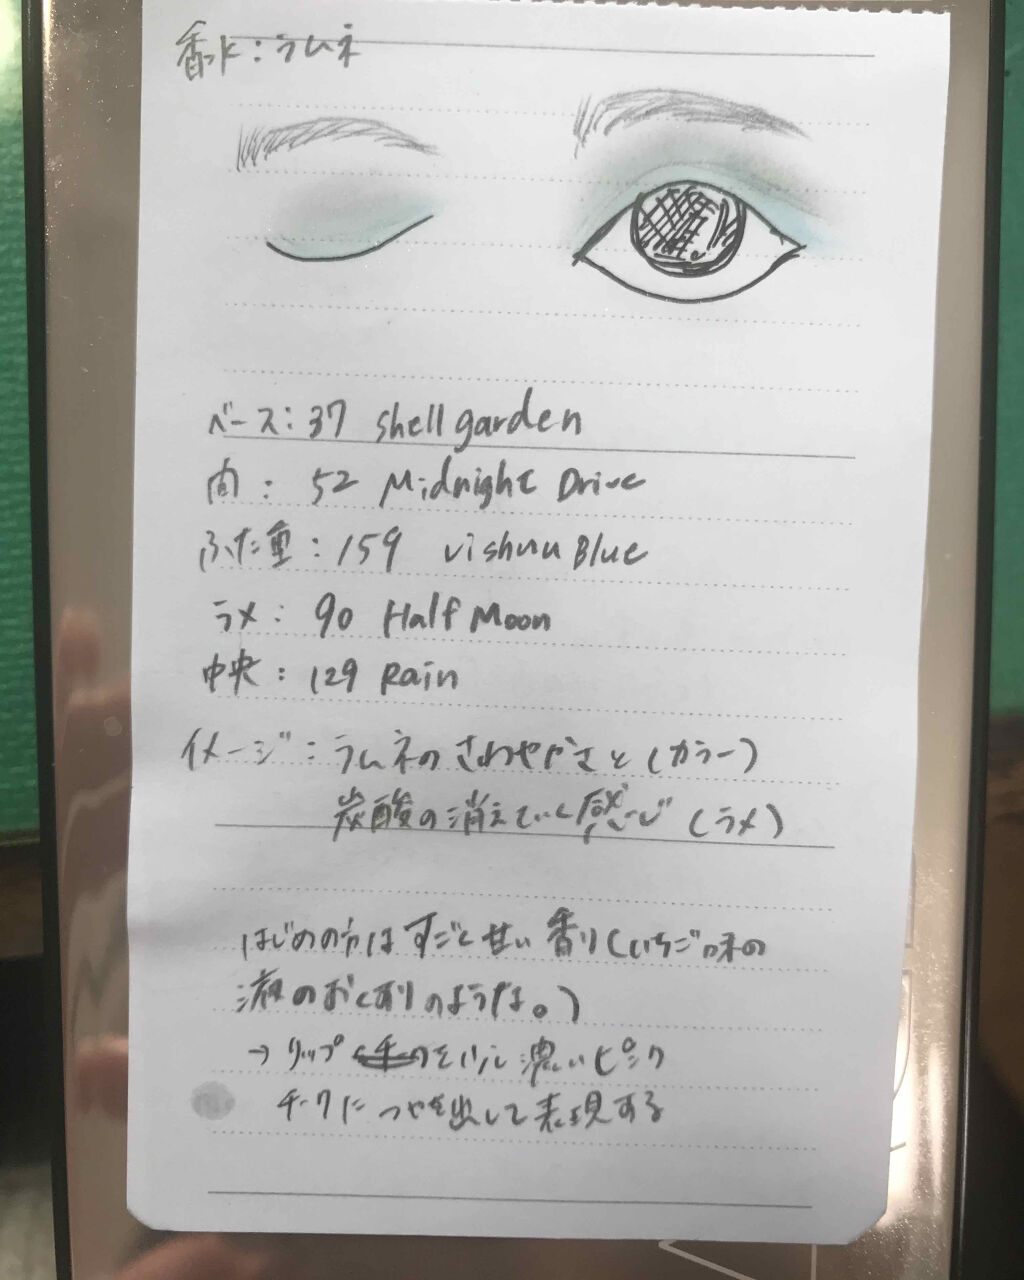 香水:ラムネ
ベース:37 shell garden
間: 52 Midnight Drive
ふた重:159 Vishnu Blue
ラメ: 90 Half Moon
中央:129 Rain
イメージ:ラムネのさわやかさと(カラー)
炭酸の消えていく感じ(ラメ)
はじめの方はすごく甘い香り(いちご味の
液のおくすりのような。)
→リップ 濃いピンク
チークにつやを出して表現する